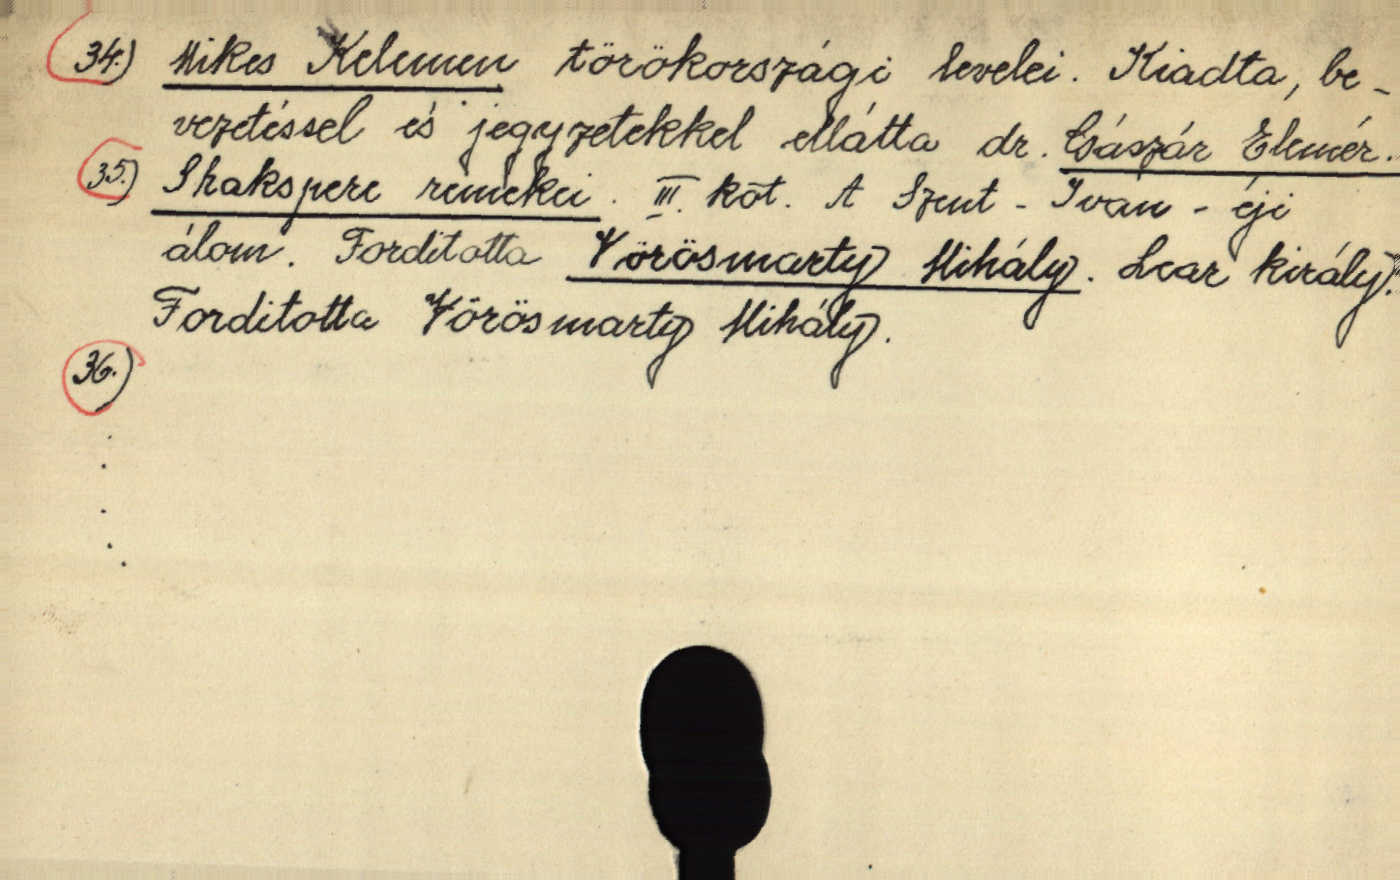 34.) Mikes Kelemen törökországi levelei. Kiadta, be-
vezetéssel és jegyzetekkel ellátta dr. Császár Elemér.
35.) Shakspere remekei. III. köt. A Szent-Iván-éji
álom. Fordította Vörösmarty Mihály. Lear király.
Fordította Vörösmarty Mihály.
36.)